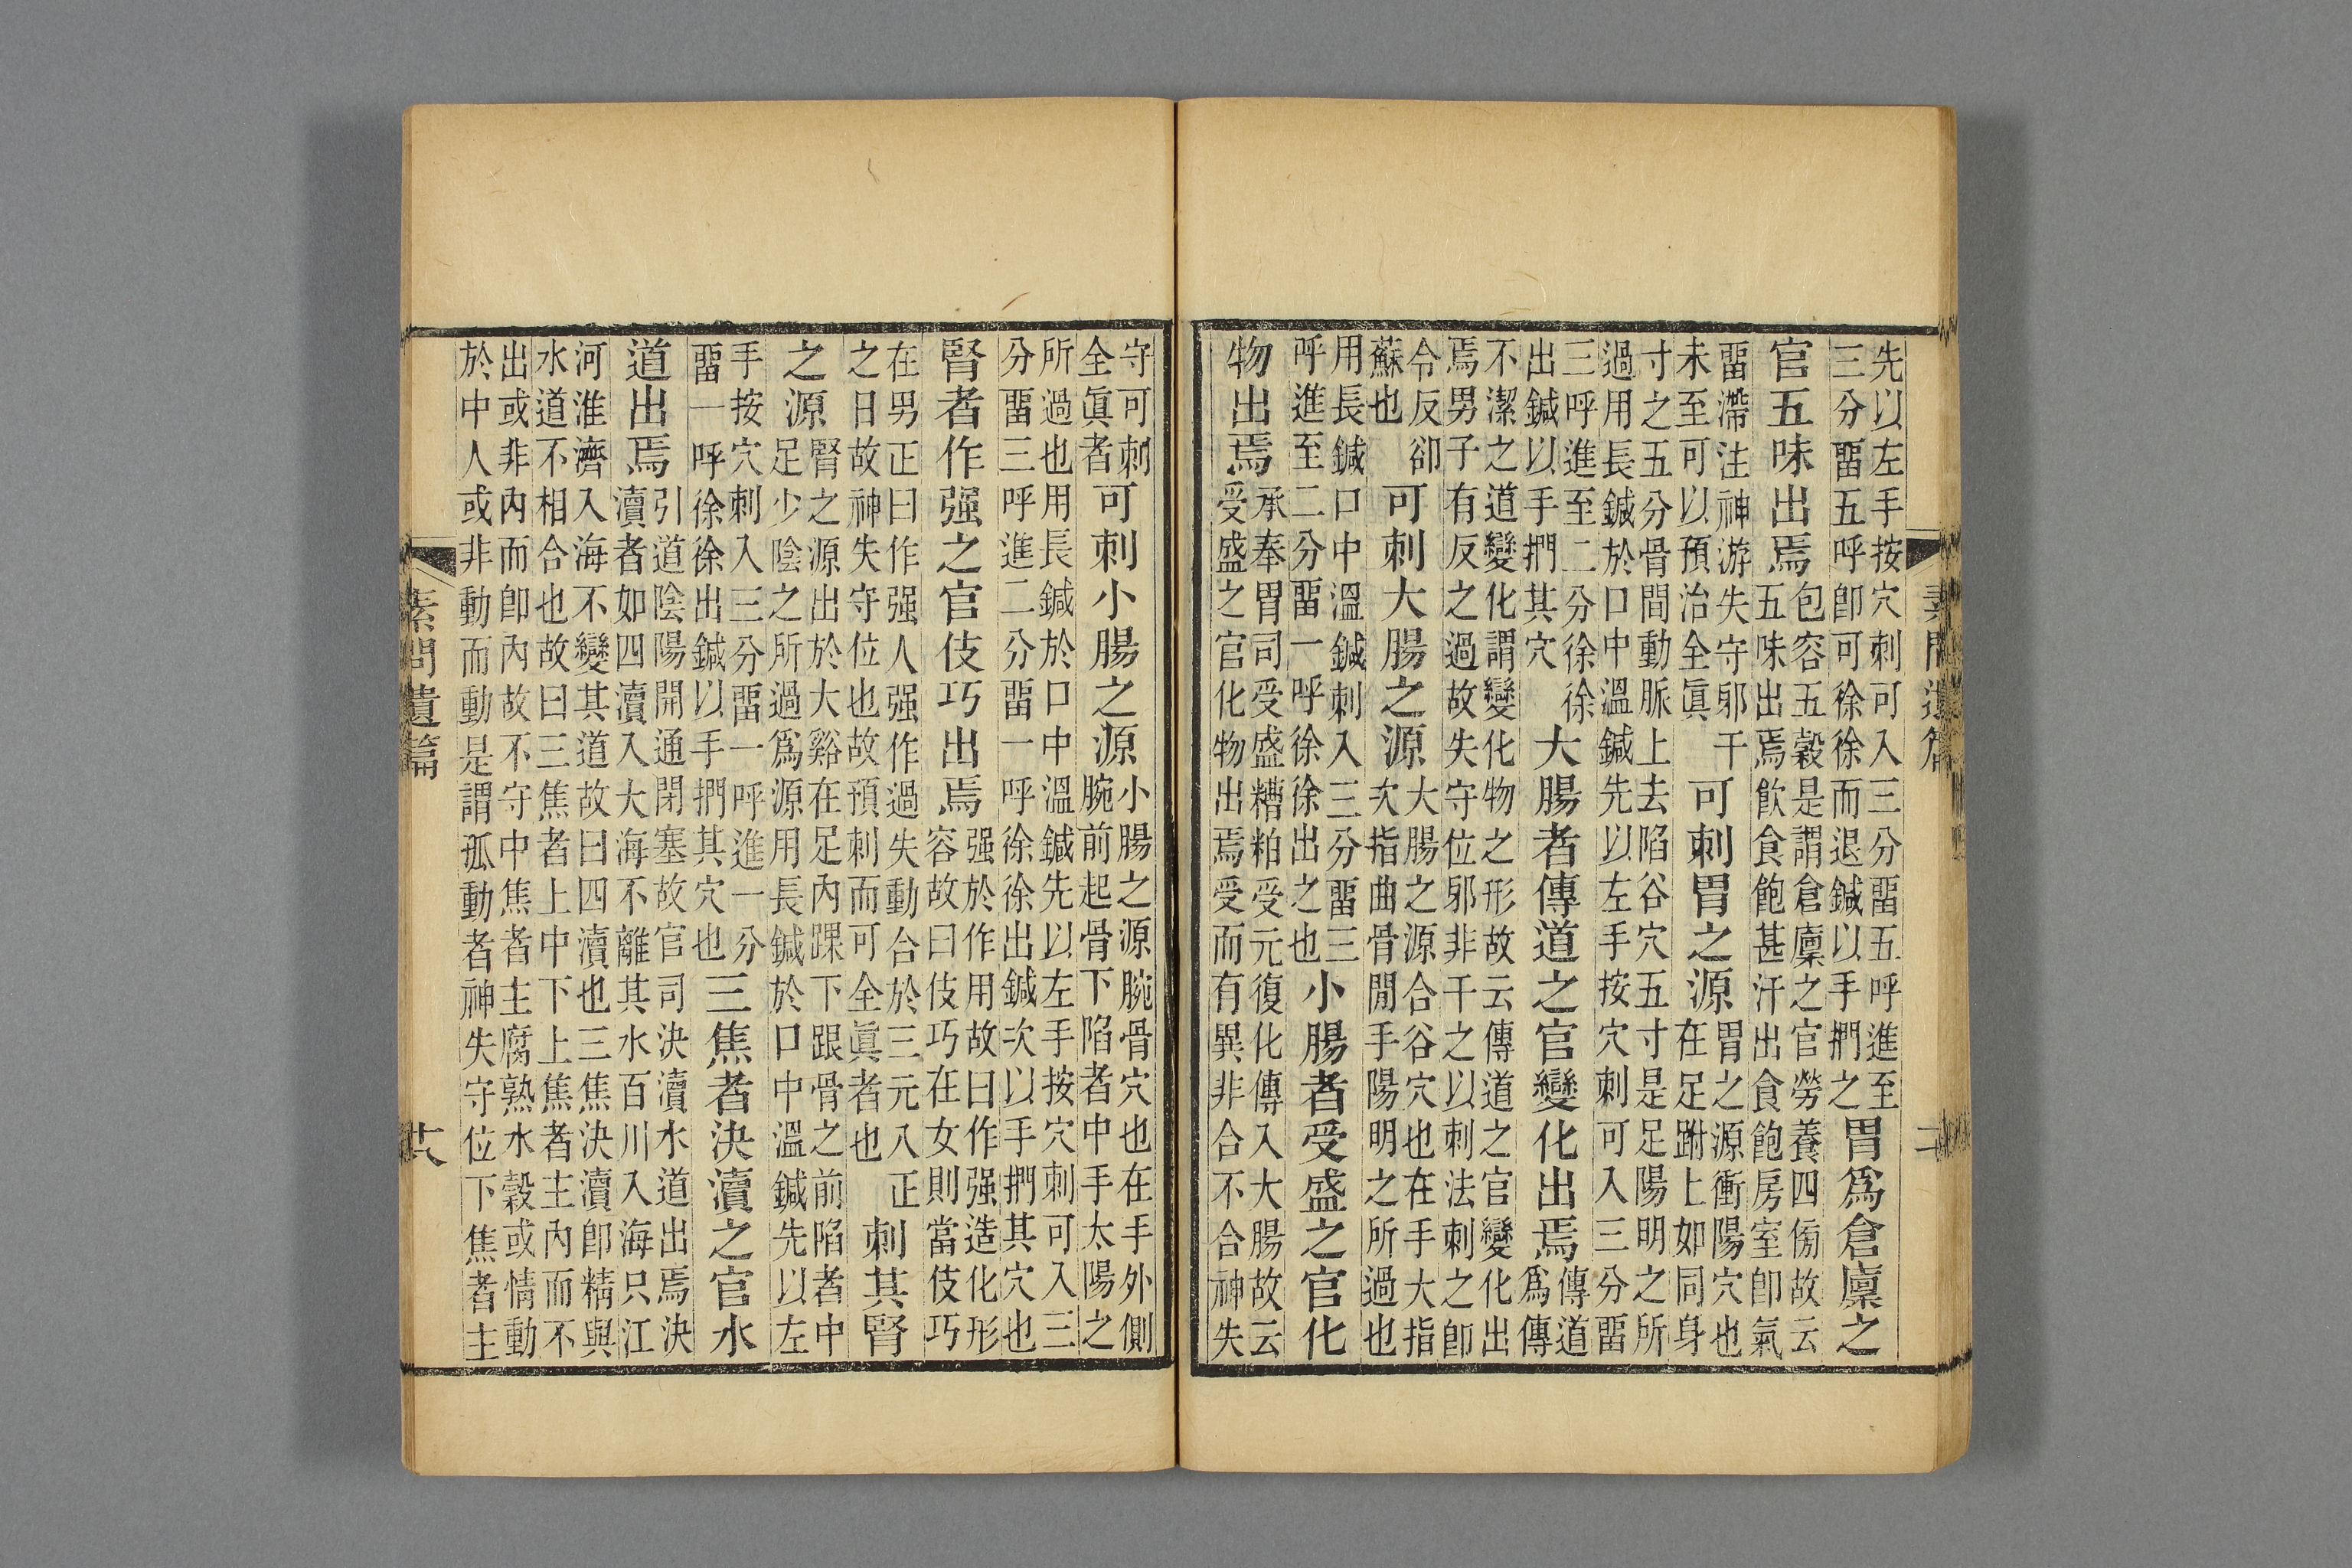 先以左手按穴刺可入三分畱五呼進至
三分畱五呼卽可徐徐而退鍼以手捫之
胃爲倉廩之
官五味出焉
包容五穀是謂倉廩之官勞養四傍故云
五味出焉飲食飽甚汗出食飽房室卽氣
畱滯注神游失守邪干
未至可以預治全眞
可刺胃之源
胃之源衝陽穴也
在足跗上如同身
寸之五分骨間動脈上去陷谷穴五寸是足陽明之所
過用長鍼於口中溫鍼先以左手按穴刺可入三分畱
三呼進至二分徐徐
出鍼以手捫其穴
大腸者傳道之官變化出焉
傳道
爲傳
不潔之道變化謂變化物之形故云傳道之官變化出
焉男子有反之過故失守位邪非干之以刺法刺之卽
令反卻
蘇也
可刺大腸之源
大腸之源合谷穴也在手大指
次指曲骨閒手陽明之所過也
用長鍼口中溫鍼刺入三分畱三
呼進至二分畱一呼徐徐出之也
小腸者受盛之官化
物出焉
承奉胃司受盛糟粕受元復化傳入大腸故云
受盛之官化物出焉受而有異非合不合神失
守可刺
全眞者
可刺小腸之源
小腸之源腕骨穴也在手外側
腕前起骨下陷者中手太陽之
所過也用長鍼於口中溫鍼先以左手按穴刺可入三
分畱三呼進二分畱一呼徐徐出鍼次以手捫其穴也
腎者作强之官伎巧出焉
强於作用故曰作强造化形
容故曰伎巧在女則當伎巧
在男正曰作强人强作過失動合於三元八正
之日故神失守位也故預刺而可全眞者也
刺其腎
之源
腎之源出於大谿在足內踝下跟骨之前陷者中
足少陰之所過爲源用長鍼於口中溫鍼先以左
手按穴刺入三分畱一呼進一分
畱一呼徐徐出鍼以手捫其穴也
三焦者決瀆之官水
道出焉
引道陰陽開通閉塞故官司決瀆水道出焉決
瀆者如四瀆入大海不離其水百川入海只江
河淮濟入海不變其道故曰四瀆也三焦決瀆卽精與
水道不相合也故曰三焦者上中下上焦者主內而不
出或非內而卽內故不守中焦者主腐熟水穀或情動
於中人或非動而動是謂孤動者神失守位下焦者主
素問遺篇
十六